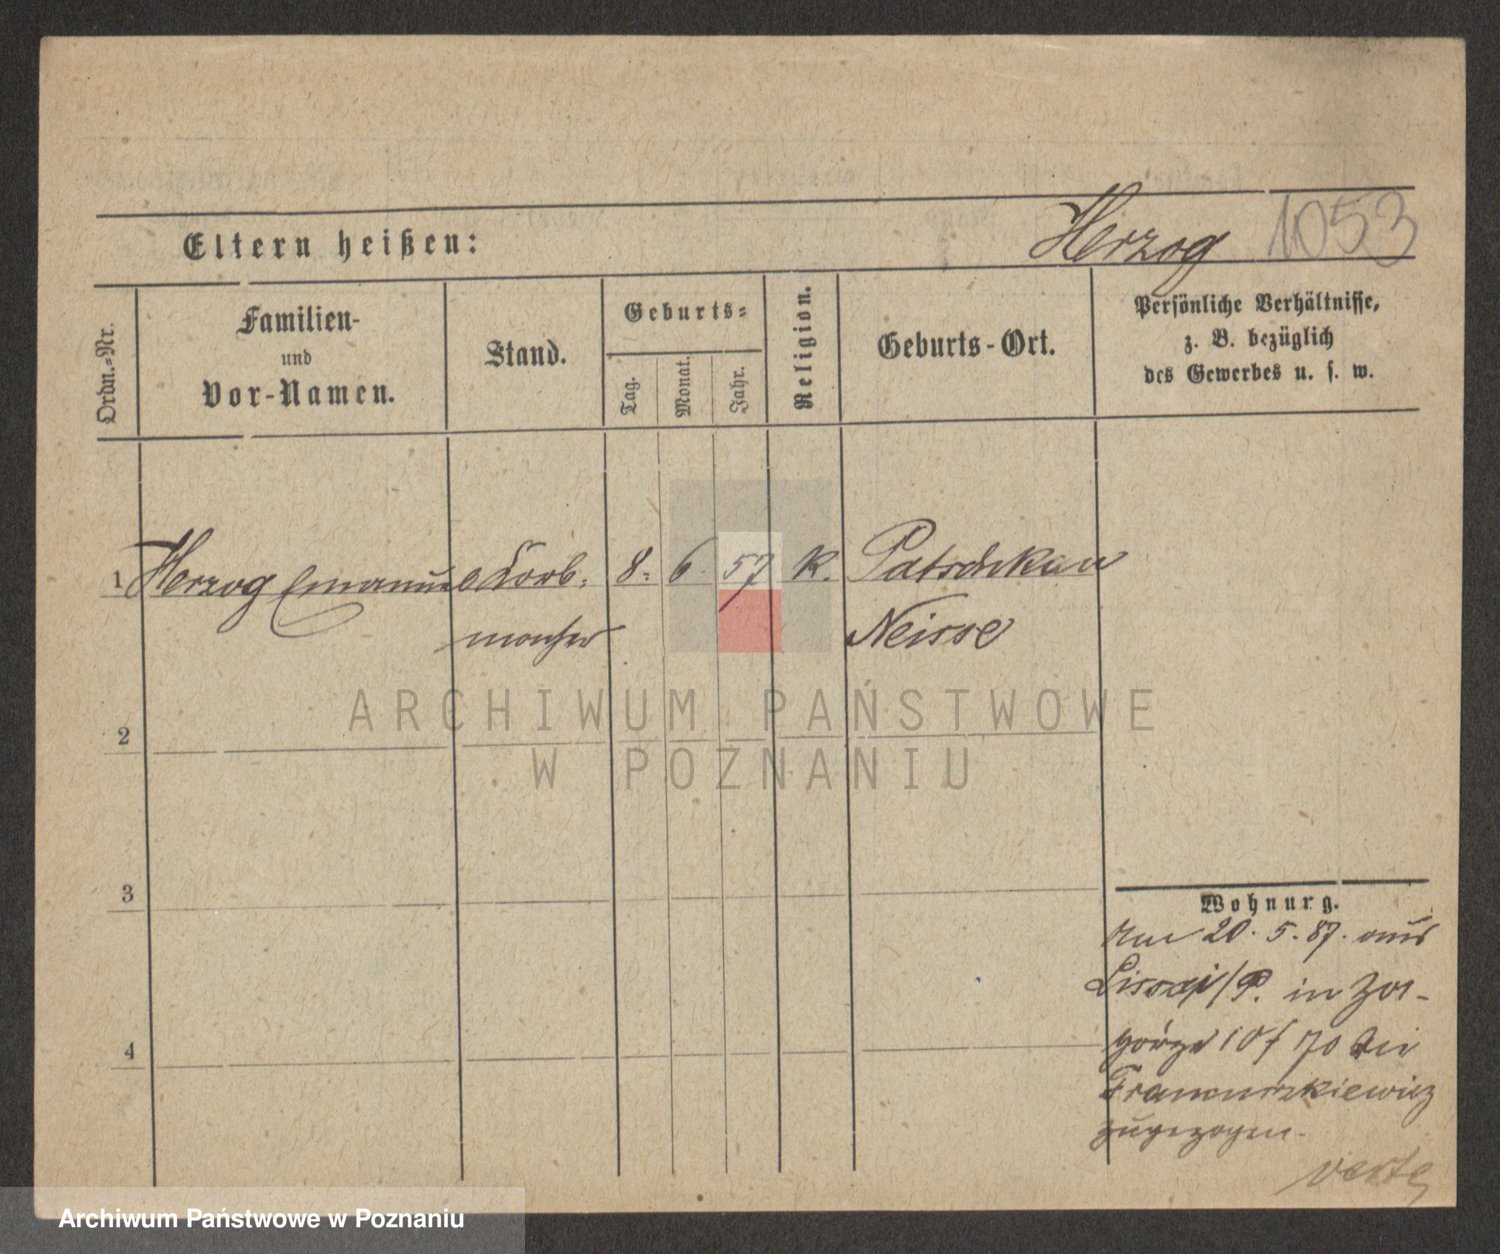 Eltern heißen:
Herzog 1053
Ordn.-Nr.
Familien-
und
Vor-Namen.
Stand.
Geburts-
Tag.
Monat.
Jahr.
Religion.
Geburts-Ort.
Persönliche Verhältnisse,
z. B. bezüglich
des Gewerbes u. s. w.
1 Herzog Emanuel Korb- 8. 6. 57 k. Patschkau
macher Neisse
2
3
4
Wohnung.
Am 20. 5. 87. aus
Lissa i/P. in Za-
górze 10 f 70 bei
Franciszkiewicz
zugezogen.
verte
ARCHIWUM PAŃSTWOWE
W POZNANIU
Archiwum Państwowe w Poznaniu